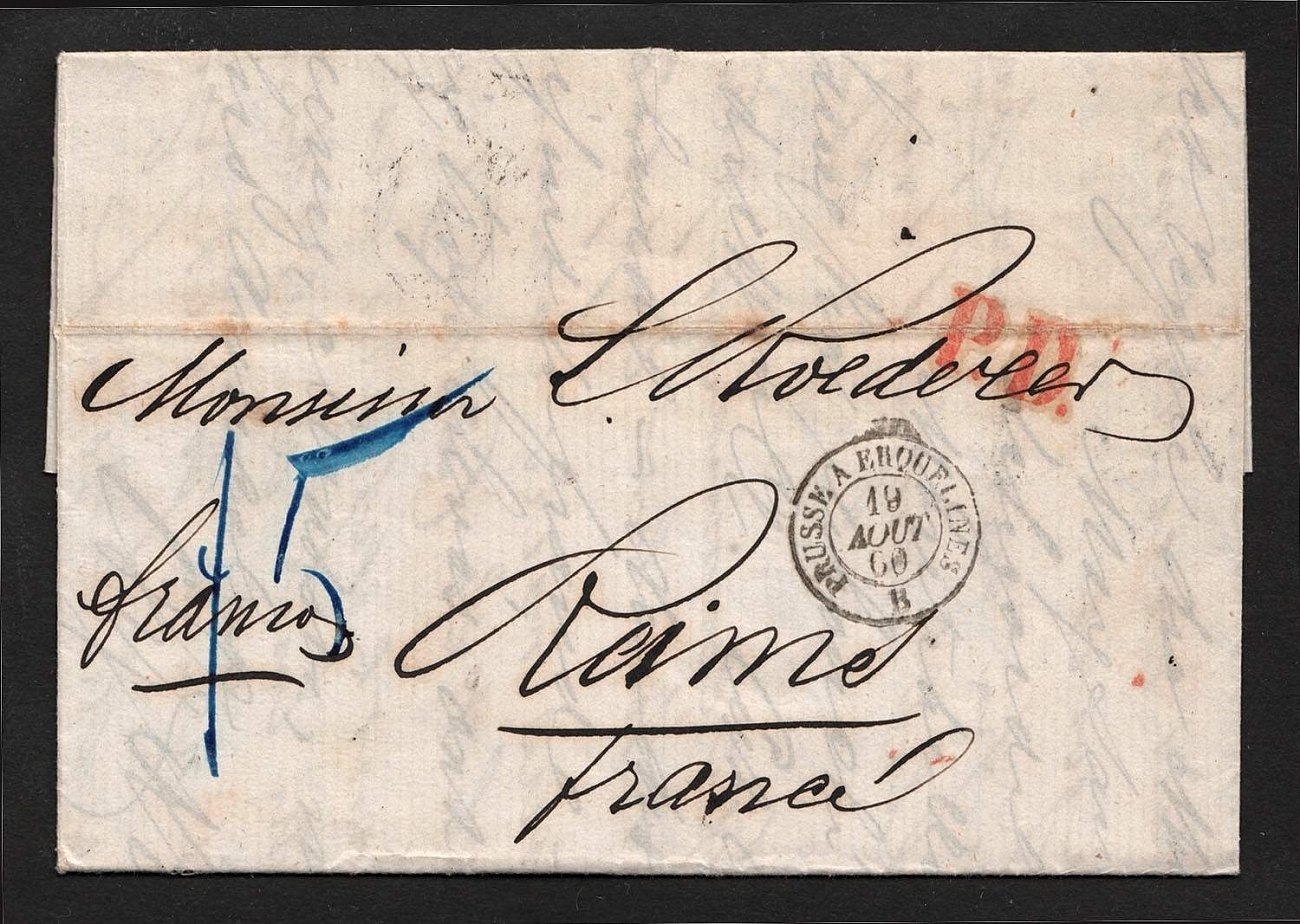 Monsieur L Roederer
P.D.
PRUSSE A ERQUELINES
19
AOUT
60
B
15
franco
Reims
France